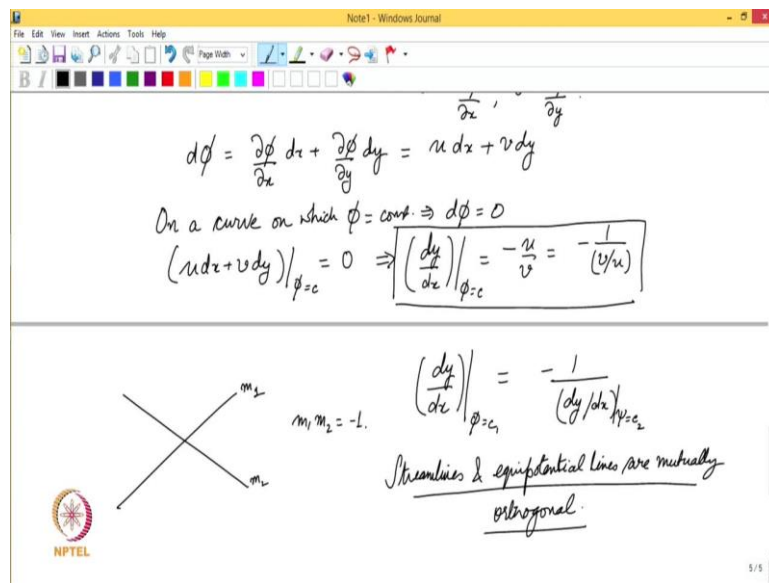 Note1 - Windows Journal
File Edit View Insert Actions Tools Help
Page Width
B I
∂x , ∂y
dϕ = ∂ϕ/∂x dx + ∂ϕ/∂y dy = u dx + v dy
On a curve on which ϕ = const. ⇒ dϕ = 0
(u dx + v dy)|ϕ=c = 0 ⇒ (dy/dx)|ϕ=c = -u/v = -1/(v/u)
m1
m1 m2 = -1.
m2
(dy/dx)|ϕ=c1 = -1/(dy/dx)|ψ=c2
Streamlines & equipotential lines are mutually
orthogonal.
NPTEL
5/5